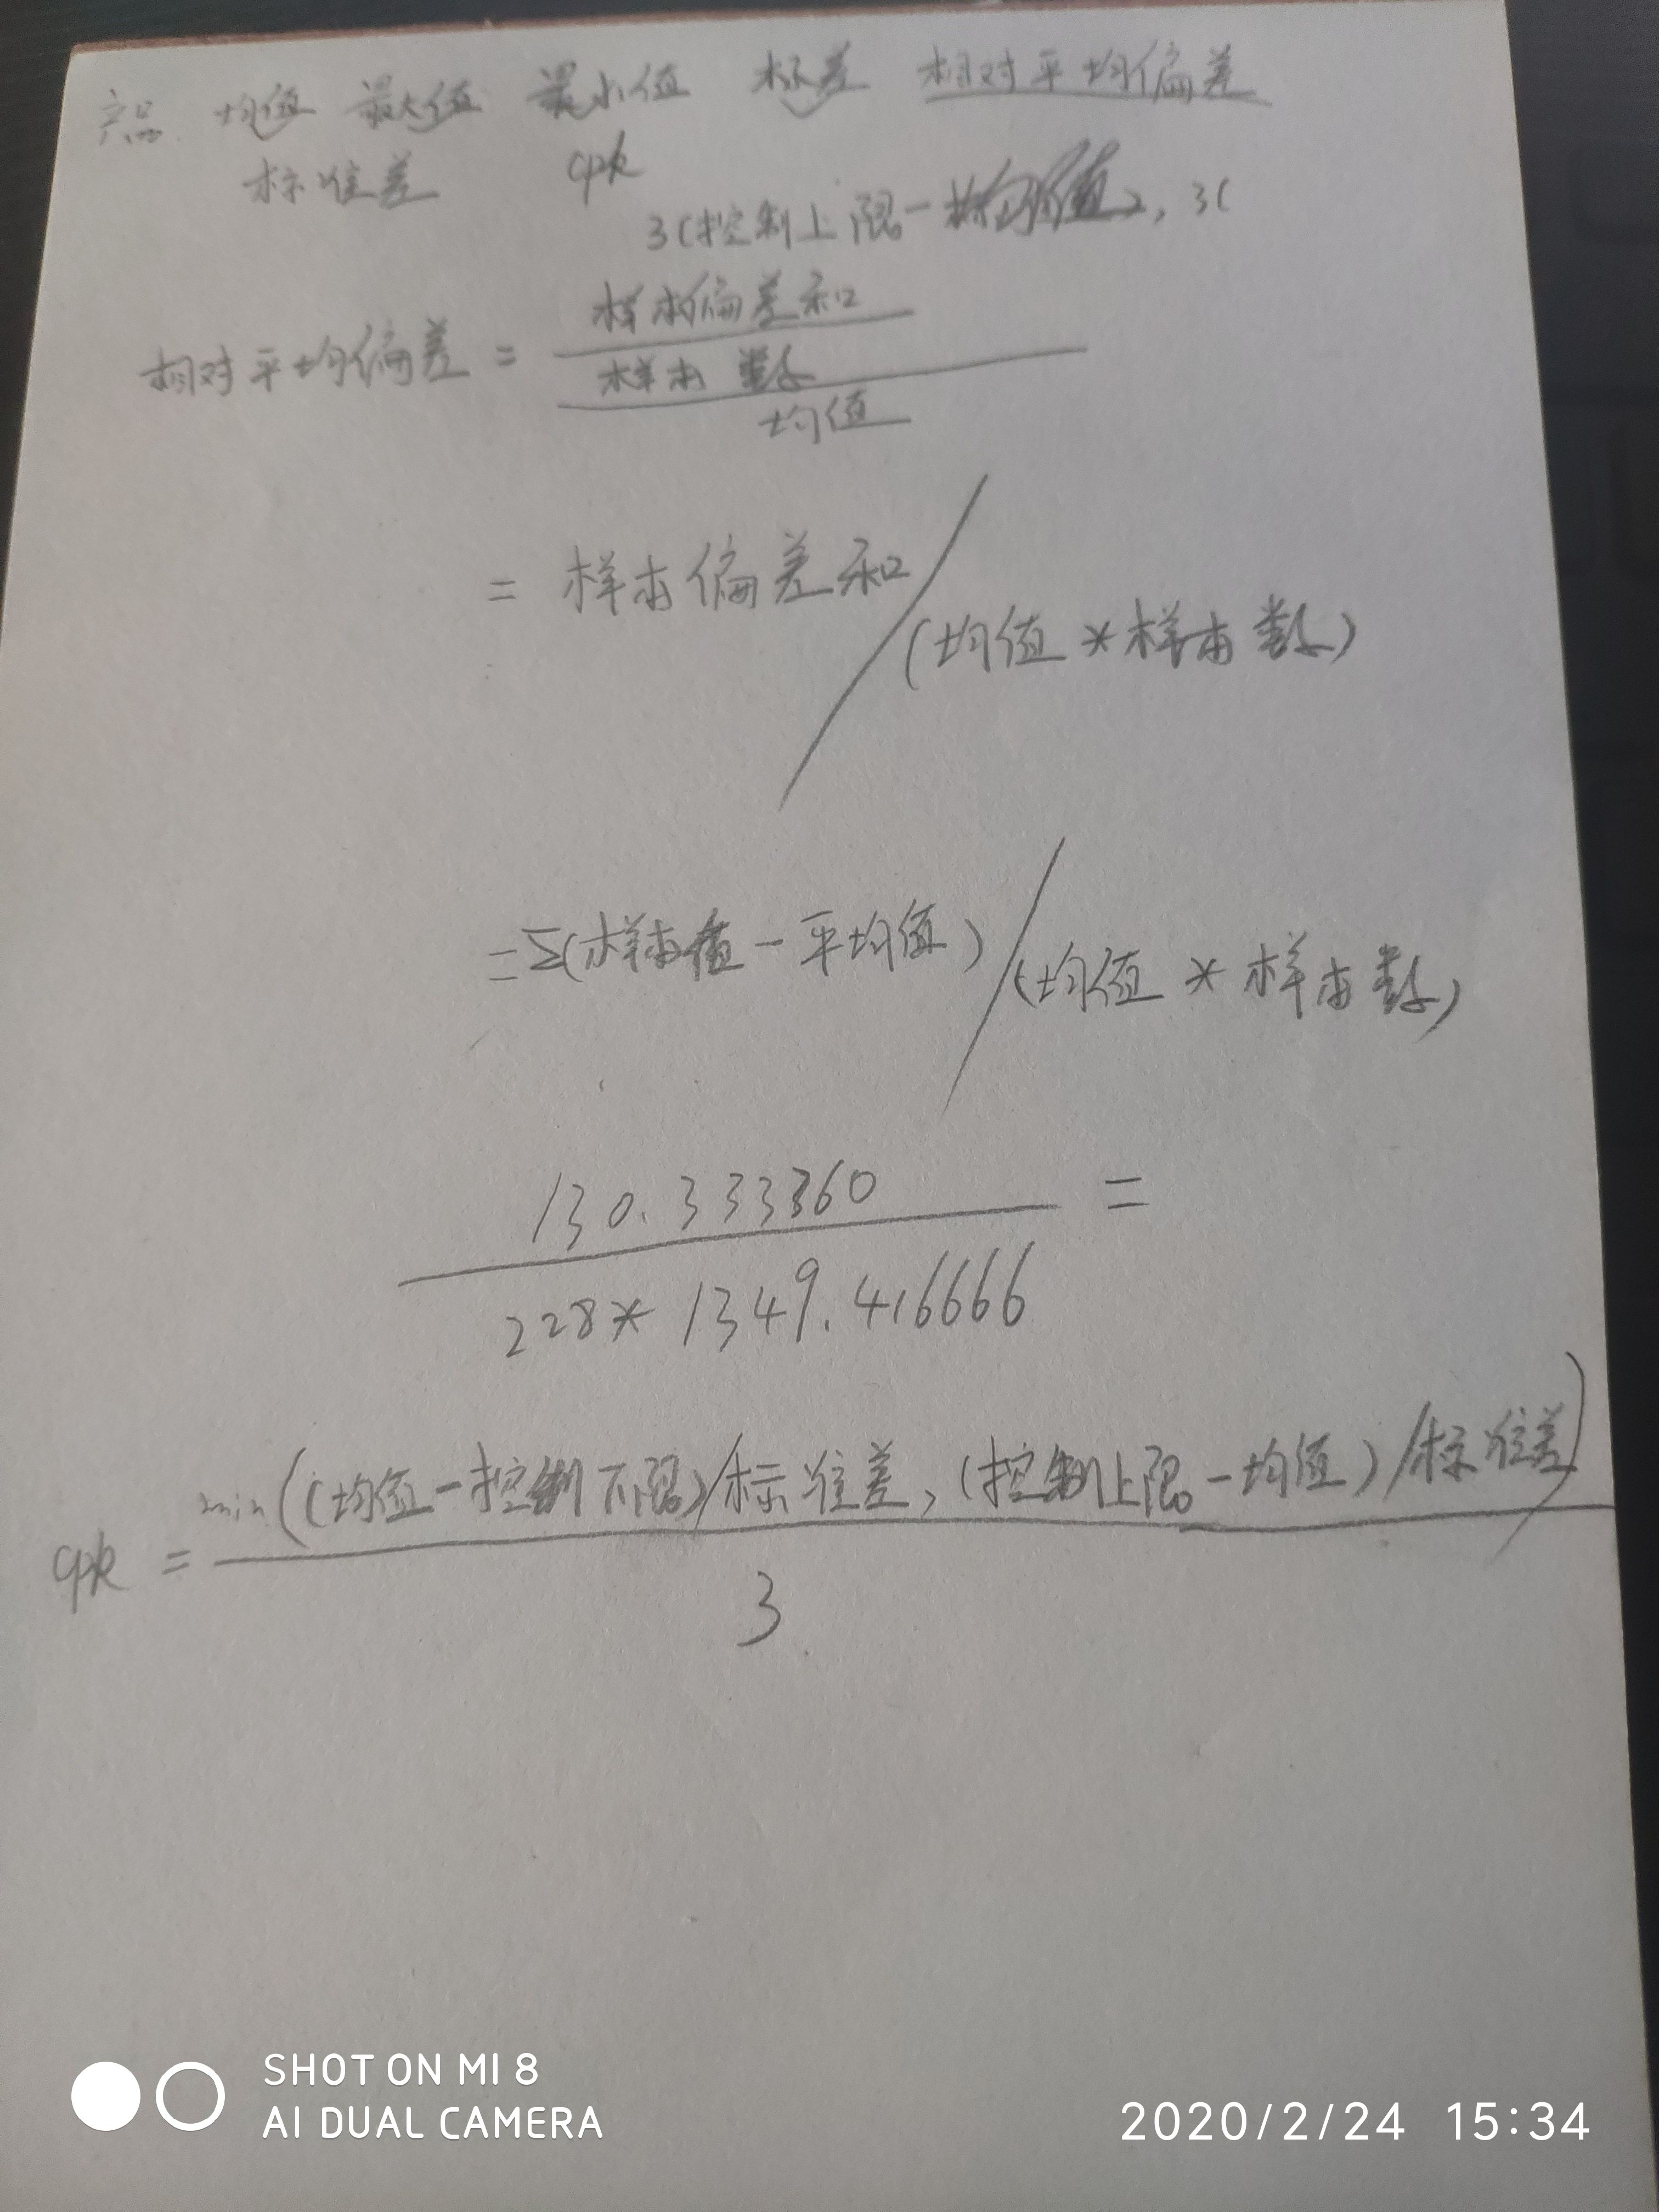 产品 均值 最大值 最小值 标差 相对平均偏差
标准差 cpk
3(控制上限-均值), 3(
样本偏差和
相对平均偏差 =
样本数
均值
= 样本偏差和/(均值*样本数)
=Σ(样本值-平均值)/(均值*样本数)
130.333360 =
228* 1349.416666
min((均值-控制下限)/标准差, (控制上限-均值)/标准差)
cpk =
3
SHOT ON MI 8
AI DUAL CAMERA
2020/2/24 15:34